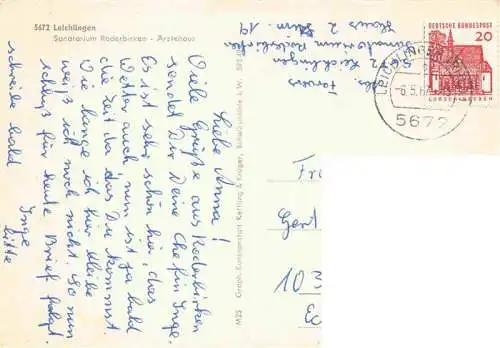 5672 Leichlingen
Sanatorium Roderbirken - Ärztehaus
Liebe Anna!
Viele Grüße aus Roderbirken
sendet Dir Deine Chefin Inge.
Es ist sehr schön hier, das
Wetter auch nun ist ja bald
die Zeit da das Du kommst.
Wie lange ich hier bleibe
weiß ich noch nicht. So nun
schluß für heute Brief folgt.
Inge
schreibe bald bitte
Sanatorium Roderbirken
Haus 2 Zim 19
5672 Leichlingen
M25 Graph. Kunstanstalt Kettling & Krüger, Schalksmühle i. W.
DEUTSCHE BUNDESPOST
20
LORSCH/HESSEN
LEICHLINGEN
5672
Gert
10